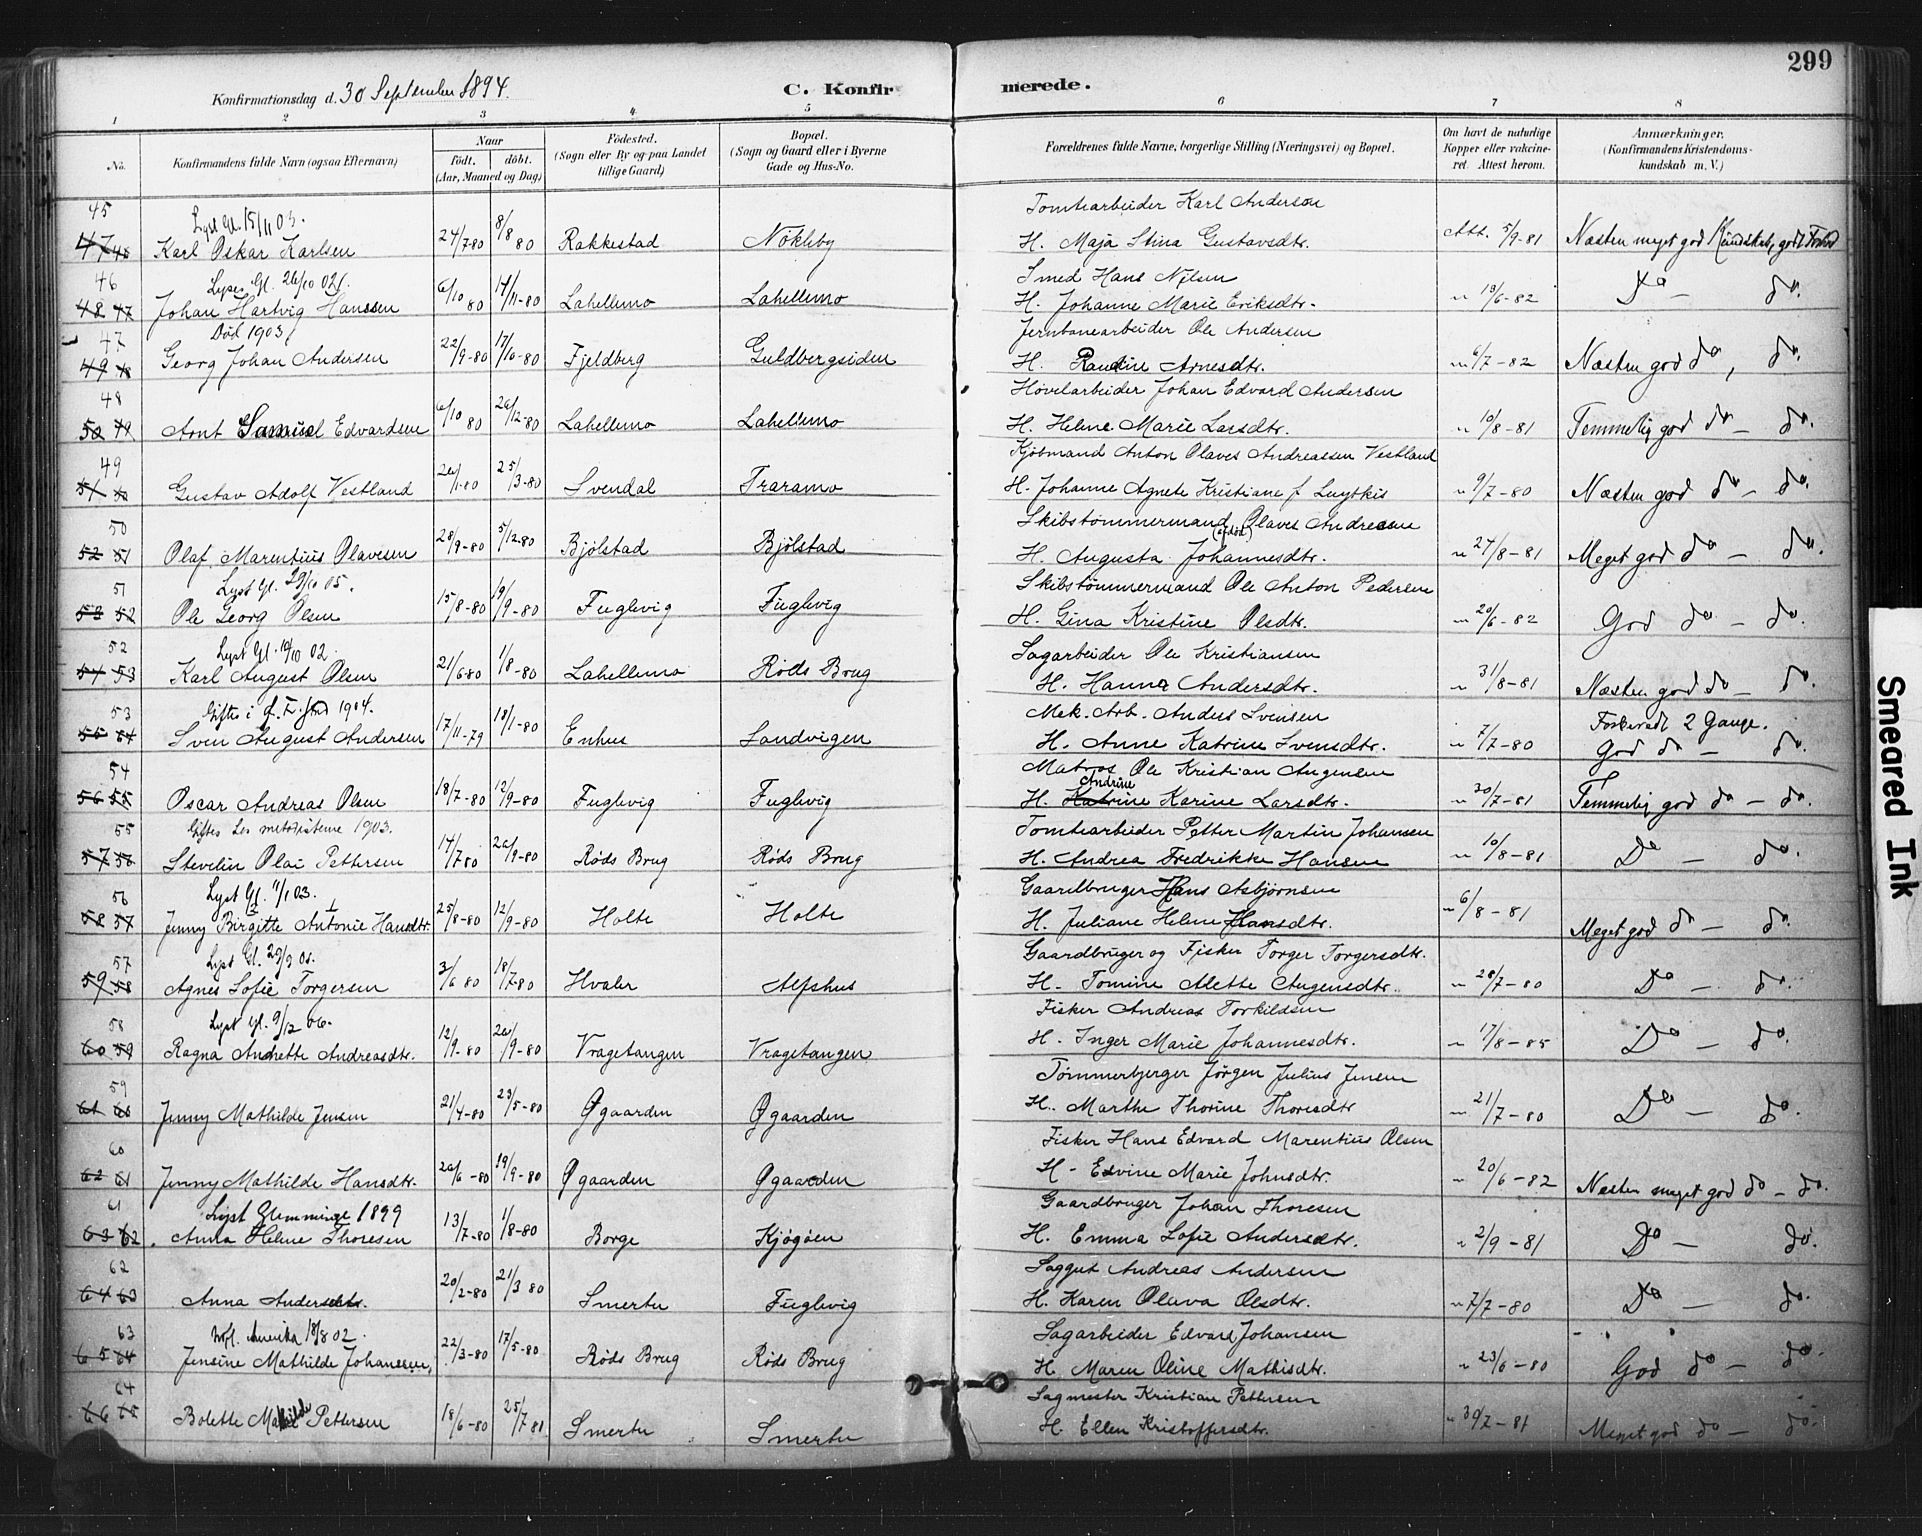 299
Konfirmationsdag d. 30 September 1894.
C. Konfirmerede.
1 2 3 4 5 6 7 8
No.
Konfirmandens fulde Navn (ogsaa Efternavn)
Naar
Født. døbt.
(Aar, Maaned og Dag)
Fødested.
(Sogn eller By og paa Landet
tillige Gaard)
Bopæl.
(Sogn og Gaard eller i Byerne
Gade og Hus-No.
Forældrenes fulde Navne, borgerlige Stilling (Næringsvei) og Bopæl.
Om havt de naturlige
Kopper eller vaccine-
ret. Attest herom.
Anmærkninger.
(Konfirmandens Kristendoms-
kundskab m. V.)
45 Lyst Gl. 15/11 03. Tomtearbeider Karl Anderson
47 46 Karl Oskar Karlsen 24/7-80 8/8 80 Rakkestad Nokleby H. Maja Stina Gustavsdtr. Att. 5/9-81 Næsten meget god Kundskab, godt Forhold
46 Lyst Gl. 26/10 02. Smed Hans Nilsen
48 47 Johan Hartvig Hanssen 6/10 80 14/11-80 Lahellemo Lahellemo H. Johanne Marie Eriksdtr. " 19/6-82 Do — do.
47 Død 1903 Jernbanearbeider Ole Andersen
49 48 Georg Johan Andersen 22/9-80 17/10-80 Fjeldberg Guldbergsiden H. Randine Arnesdtr. " 6/7-82 Næsten god do, do.
48 Høvelarbeider Johan Edvard Andersen
50 49 Arnt Samuel Edvardsen 6/10 80 26/12-80 Lahellemo Lahellemo H. Helene Marie Larsdtr. " 10/8-81 Temmelig god do — do.
49 Kjøbmand Anton Olaves Andreassen Vestland
51 50 Gustav Adolf Vestland 26/1-80 25/3-80 Svendal Traramo H. Johanne Agnete Kristiane f. " 9/7-80 Næsten god do — do.
50 Skibstømmermand Olaves Andresen
52 51 Olaf Marentius Olavesen 28/9-80 5/12-80 Bjølstad Bjølstad H. Augusta (afdød) Johannesdtr. " 27/8-81 Meget god do — do.
51 Lyst Gl. 29/10 05. Skibstømmermand Ole Anton Pedersen
53 52 Ole Georg Olsen 15/8-80 19/9-80 Fuglevig Fuglevig H. Gina Kristine Olsdtr. " 20/6-82 God do — do.
52 Lyst Gl. 19/10 02. Sagarbeider Ole Kristiansen
54 53 Karl August Olsen 21/6-80 1/8-80 Lahellemo Røds Brug H. Hanna Andersdtr. " 31/8-81 Næsten god do — do.
53 Giftes i 1904. Mek. Arb. Anders Svensen Forberedt 2 Gange.
55 54 Sven August Andersen 17/11-79 18/1-80 Enhus Sandvigen H. Anne Katrine Svensdtr. " 7/7-80 God do — do.
54 Matros Ole Kristian Augensen
56 55 Oscar Andreas Olsen 18/7-80 12/9-80 Fuglevig Fuglevig H. Katrine Andrine Karine Larsdtr. " 20/7-81 Temmelig god do — do.
55 Giftes hos metodisterne 1903. Tomtearbeider Petter Martin Johansen
57 56 Stevelin Olai Pettersen 14/7 80 26/9-80 Røds Brug Røds Brug H. Andrea Fredrikke Hansen " 10/8-81 Do — do.
56 Lyst Gl. 11/1 03. Gaardbruger Hans Asbjørnsen
58 57 Jenny Birgitte Antonie Hansdtr. 25/8-80 12/9-80 Holte Holte H. Juliane Helene Hansdtr. " 6/8-81 Meget god do — do.
57 Lyst Gl. 29/9 01. Gaardbruger og Fisker Torger Torgersdtr.
59 58 Agnes Sofie Torgersen 3/6 80 18/7-80 Hvaler Alfshus H. Tomine Alette Augensdtr. " 28/7-80 Do — do.
58 Lyst Gl. 9/12 06. Fisker Andreas Torkildsen
60 59 Ragna Anette Andreasdtr. 12/9-80 26/9-80 Vragetangen Vragetangen H. Inger Marie Johannesdtr. " 17/8-85 Do — do.
59 Tømmerbjerger Jørgen Julius Jensen
61 60 Jenny Mathilde Jensen 21/4-80 23/5-80 Øgaarden Øgaarden H. Marthe Thorine Thoresdtr " 21/7-80 Do — do.
60 Fisker Hans Edvard Marentius Olsen
62 61 Jenny Mathilde Hansdtr. 20/6-80 19/9-80 Øgaarden Øgaarden H. Edvine Marie Johnsdtr. " 20/6-82 Næsten meget god do — do.
61 Lyst Glemminge 1899 Gaardbruger Johan Thoresen
63 62 Anna Helene Thoresen 13/7-80 1/8-80 Borge Kjøgøen H. Emma Sofie Andersdtr. " 2/9-81 Do — do.
62 Saggut Andreas Andersen
64 63 Anna Andersdtr. 20/2-80 21/3 80 Smertu Fuglevig H. Karen Olava Olsdtr. " 7/7-80 Do — do.
63 Utfl. Amerika 18/8 02. Sagarbeider Edvard Johansen
65 64 Jensine Mathilde Johanssen 22/3-80 17/5-80 Røds Brug Røds Brug H. Maren Oline Mathisdtr. " 23/6-80 God do — do.
64 Sagmester Kristian Pettersen
66 65 Bolette Mathilde Pettersen 18/6-80 25/7 81 Smertu Smertu H. Ellen Kristoffersdtr. " 30/7-81 Meget god do — do.
Smeared Ink